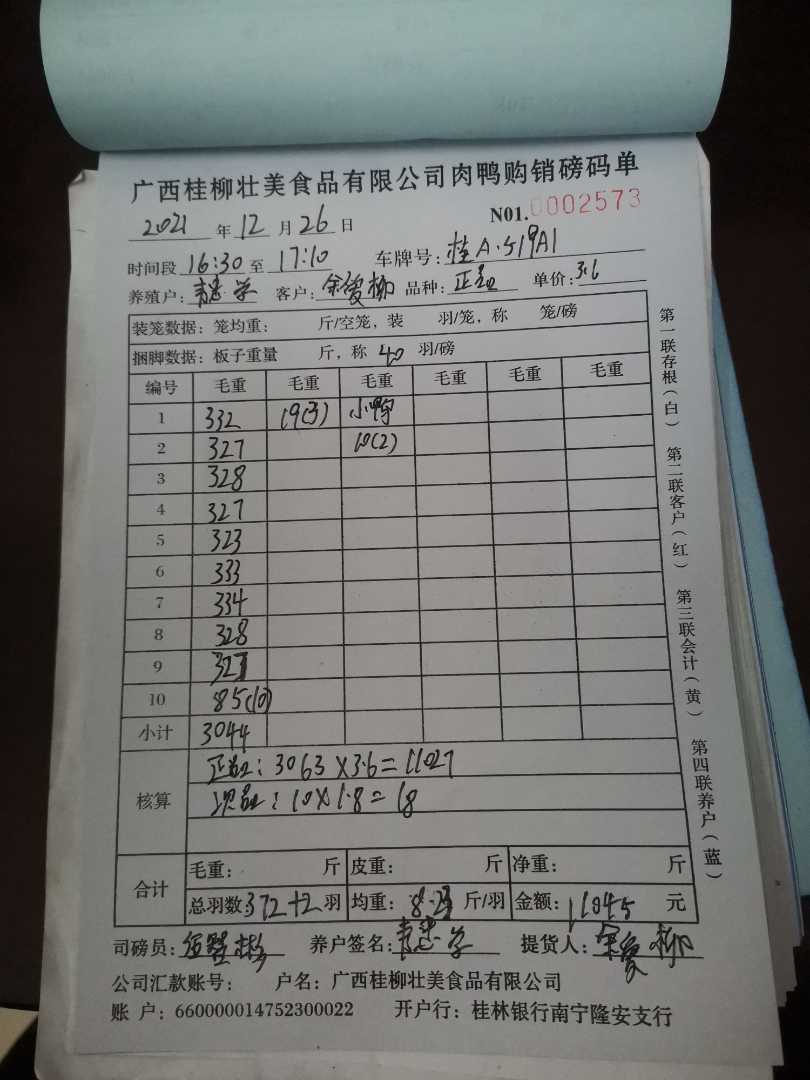 广西桂柳壮美食品有限公司肉鸭购销磅码单
2021 年 12 月 26 日 N01.0002573
时间段 16:30 至 17:10 车牌号: 桂A·519A1
养殖户: 学 客户: 余爱柳 品种: 正品 单价: 3.6
装笼数据: 笼均重: 斤/空笼, 装 羽/笼, 称 笼/磅
捆脚数据: 板子重量 斤, 称 40 羽/磅
编号 毛重 毛重 毛重 毛重 毛重 毛重
1 332 19(3) 小鸭
2 327 10(2)
3 328
4 327
5 323
6 333
7 334
8 328
9 327
10 85(10)
小计 3044
核算 正品: 3063×3.6=11027
次品: 10×1.8=18
合计 毛重: 斤 皮重: 斤 净重: 斤
总羽数: 372+2 羽 均重: 8.23 斤/羽 金额: 11045 元
司磅员: 养户签名: 学 提货人: 余爱柳
公司汇款账号: 户名: 广西桂柳壮美食品有限公司
账 户: 660000014752300022 开户行: 桂林银行南宁隆安支行
第一联存根(白) 第二联客户(红) 第三联会计(黄) 第四联养户(蓝)